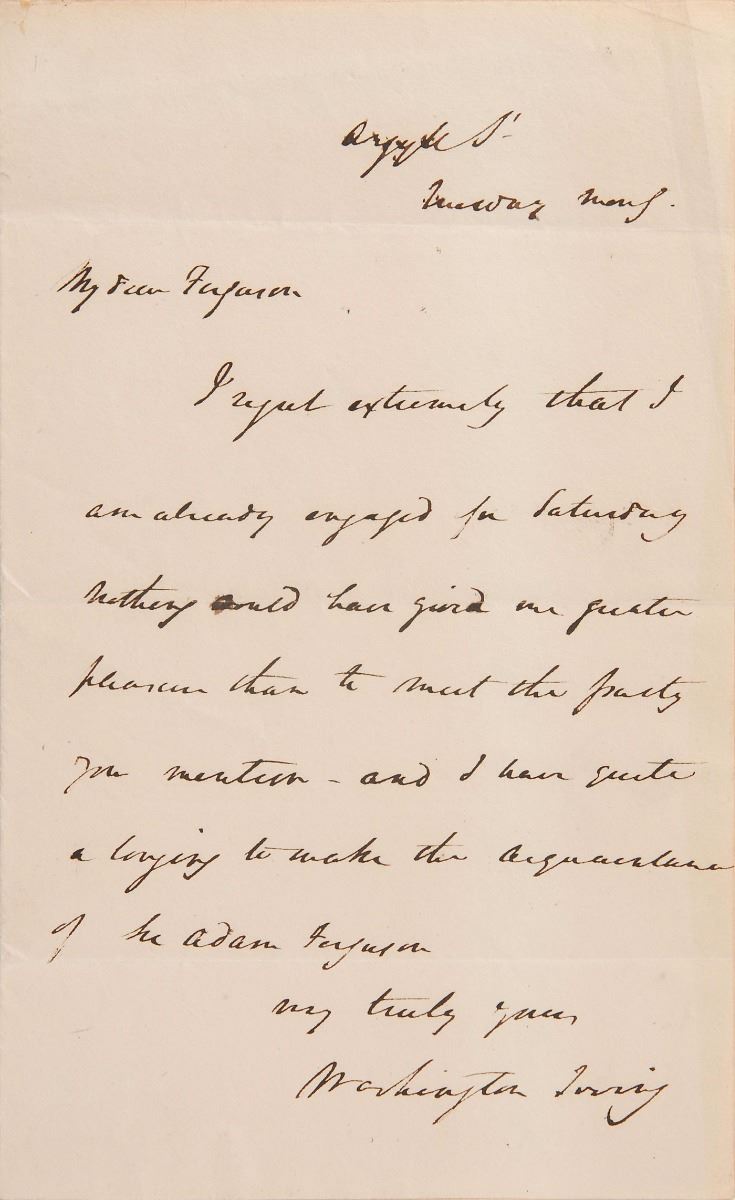 Argyll St
Tuesday Morng.
My dear Ferguson
I regret extremely that I
am already engaged for Saturday
Nothing could have given me greater
pleasure than to meet the party
you mention - and I have quite
a longing to make the acquaintance
of Sir Adam Ferguson
very truly yours
Washington Irving